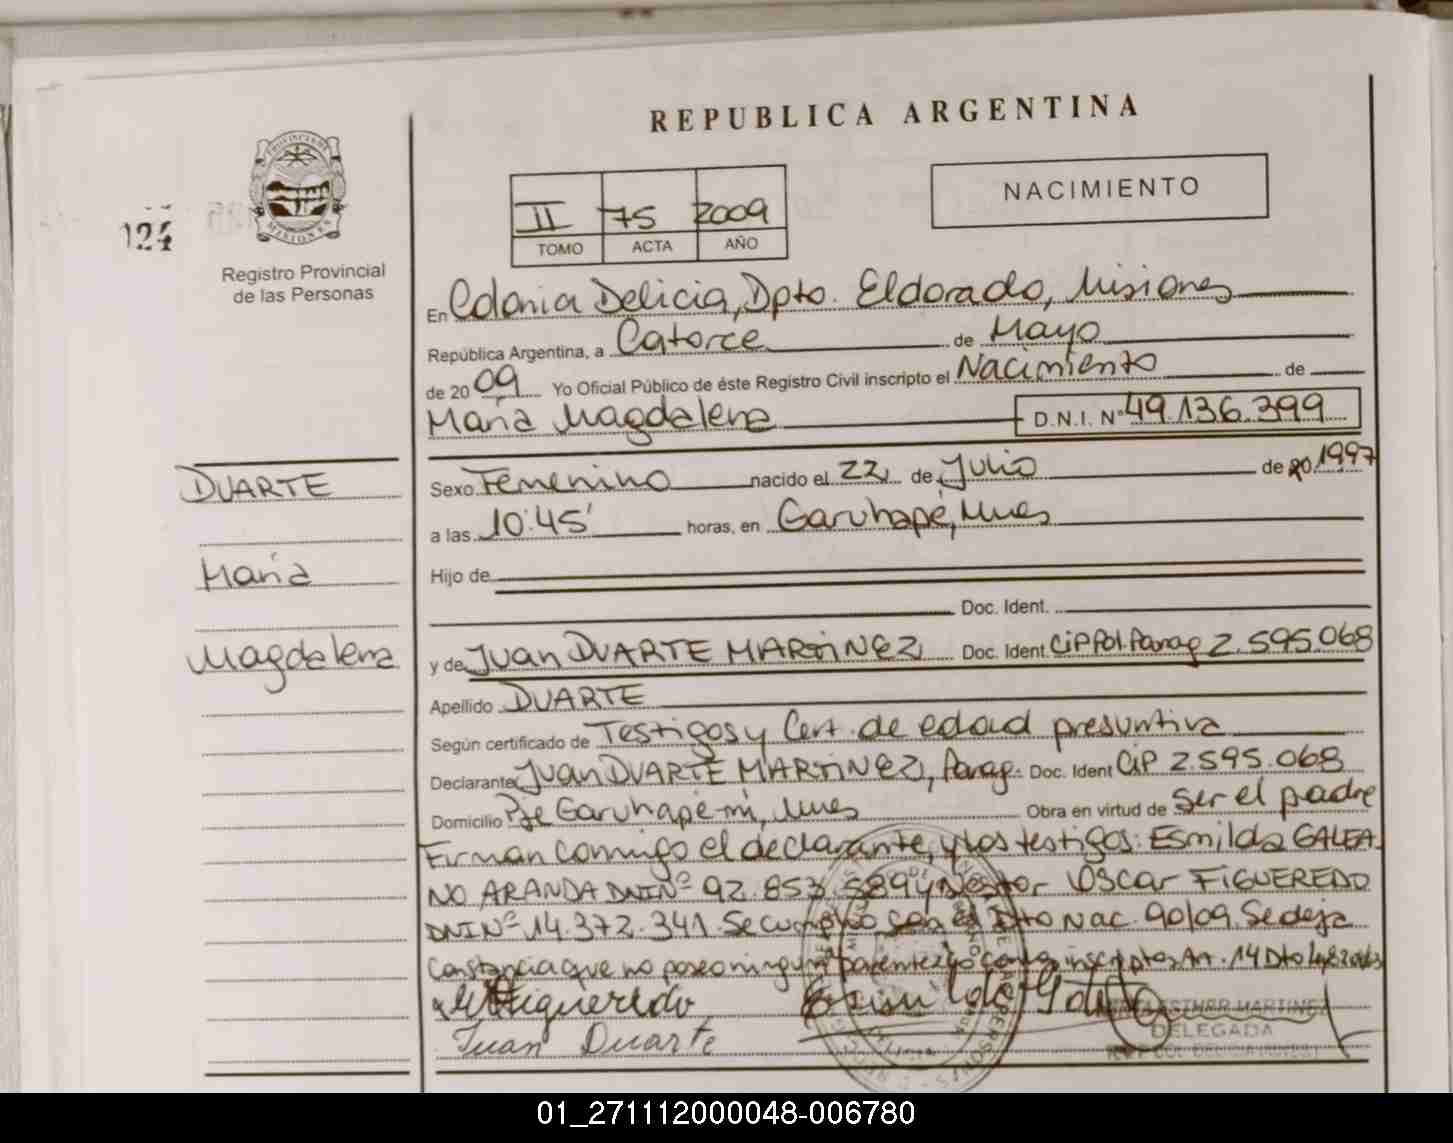 REPUBLICA ARGENTINA
NACIMIENTO
II 75 2009
TOMO ACTA AÑO
124
PROVINCIA DE MISIONES
Registro Provincial
de las Personas
En Colonia Delicia, Dpto. Eldorado, Misiones
República Argentina, a Catorce de Mayo
de 2009 Yo Oficial Público de éste Registro Civil inscripto el Nacimiento de
María Magdalena D.N.I. N° 49.136.399
DUARTE
María
Magdalena
Sexo Femenino nacido el 22 de Julio de 20 1997
a las 10:45' horas, en Garuhapé, Mnes
Hijo de
Doc. Ident.
y de Juan DUARTE MARTINEZ Doc. Ident. CiP Pol. Parag 2.595.068
Apellido DUARTE
Según certificado de Testigos y Cert. de edad presuntiva
Declarante Juan DUARTE MARTINEZ, Parag. Doc. Ident CiP 2.595.068
Domicilio Pje Garuhapé-mí, Mnes Obra en virtud de ser el padre
Firman conmigo el declarante, y los testigos: Esmilda GALEA
NO ARANDA DNI N° 92.853.589 y Nestor Oscar FIGUEREDO
DNI N° 14.372.341. Se cumplió con el Dto Nac. 90/09. Se deja
Constancia que no poseo ningun parentezco con los inscriptos Art. 14 Dto Ley
Figueredo
Juan Duarte
ESTHER MARTINEZ
DELEGADA
01_271112000048-006780